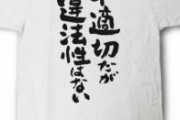 不適切だが
違法性はない